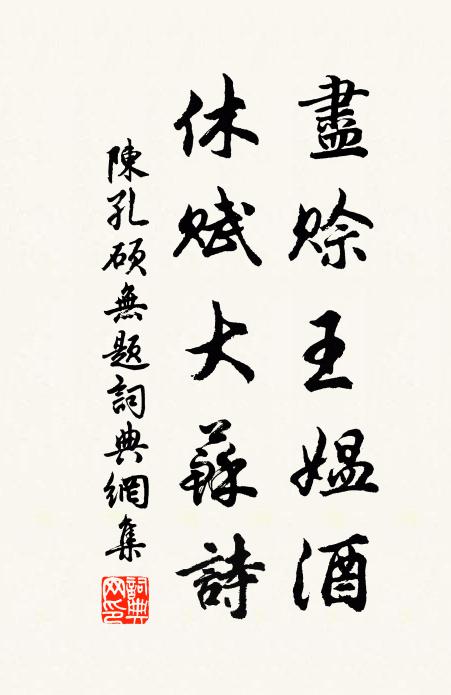 盡賒王媼酒
休賦大蘇詩
陳孔硕無題詞典網集
詞典
网印